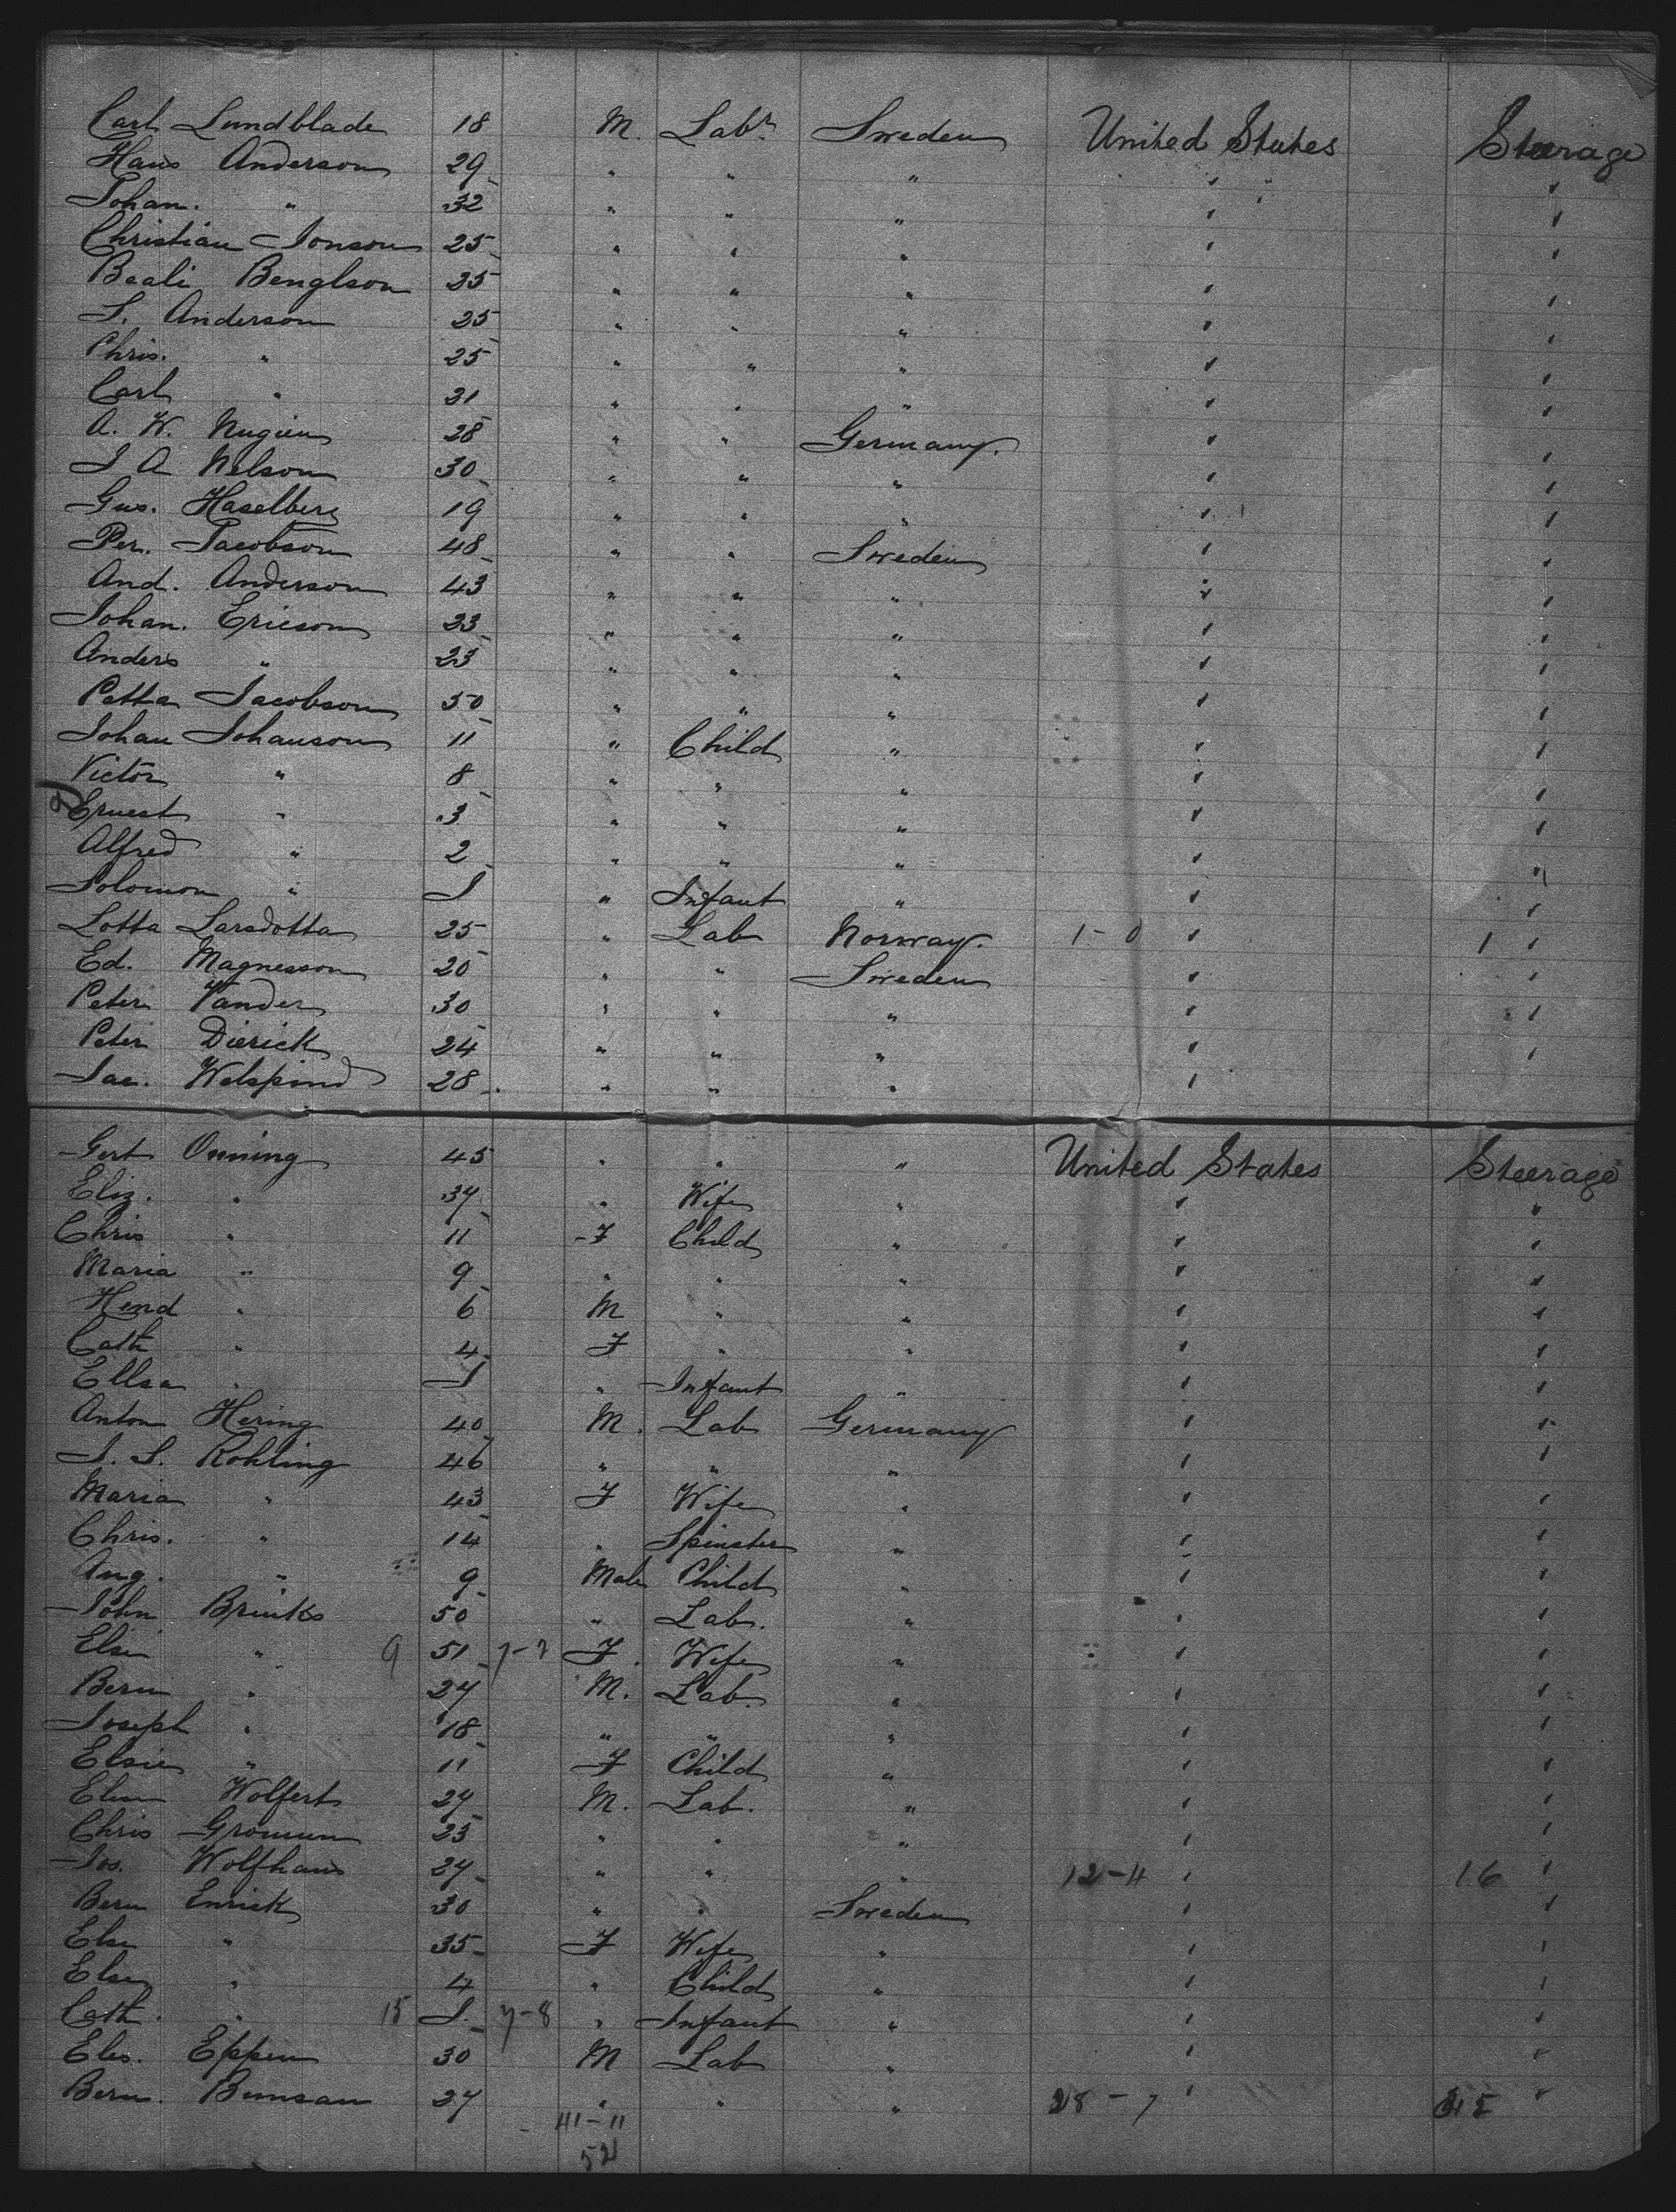 Carl Lundblade 18 M. Labr Sweden United States Steerage
Hans Anderson 29 " " " " "
Johan. " 32 " " " " "
Christian Jonson 25 " " " " "
Beali Benglson 35 " " " " "
S. Anderson 25 " " " " "
Chris. " 25 " " " " "
Carl " 31 " " " " "
A. W. 28 " " Germany. " "
J A Nelson 30 " " " " "
Gus. Haselberg 19 " " " " "
Per. Jacobson 48 " " Sweden " "
And. Anderson 43 " " " " "
Johan. Ericson 23 " " " " "
Anders " 23 " " " " "
Petta Jacobson 50 " " " " "
Johan Johanson 11 " Child " " "
Victor " 8 " " " " "
Ernest " 3 " " " " "
Alfred " 2 " " " " "
Solomon " I " Infant " " "
Lotta Larsdotta 25 " Lab Norway. 1-0 " 1 "
Ed. Magnesson 20 " " Sweden " "
Peter Vander 30 " " " " "
Peter Dierick 24 " " " " "
Jac. Welspind 28 " " " "
Gert Onning 45 " " " United States Steerage
Eliz. " 34 " Wife " " "
Chris " 11 F Child " " "
Maria " 9 " " " " "
Hend " 6 M " " " "
Cath " 4 F " " " "
Ellsa " I " Infant " " "
Anton Hering 40 M. Lab Germany " "
J. S. Rohling 46 " " " " "
Maria " 43 F Wife " " "
Chris. " 14 " Spinster " " "
Aug. " 9 Male Child " " "
John Brinks 50 " Lab. " " "
Else " 9 51 7-2 F. Wife " " "
Bern " 24 M. Lab. " " "
Joseph " 18 " " " " "
Elsie " 11 F Child " " "
Wolfert 27 M. Lab. " " "
Chris 25 " " " " "
Jos. Wolfhaus 27 " " " 12-4 " 16 "
Bern Enrick 30 " " Sweden " "
Else " 35 F Wife " " "
Else " 4 " Child " " "
Cath. " 15 I. 7-8 " Infant " " "
Eles. Eppen 30 M Lab " " "
Bern. Bumsan 27 " " " 28-7 " 45 "
41-11
52